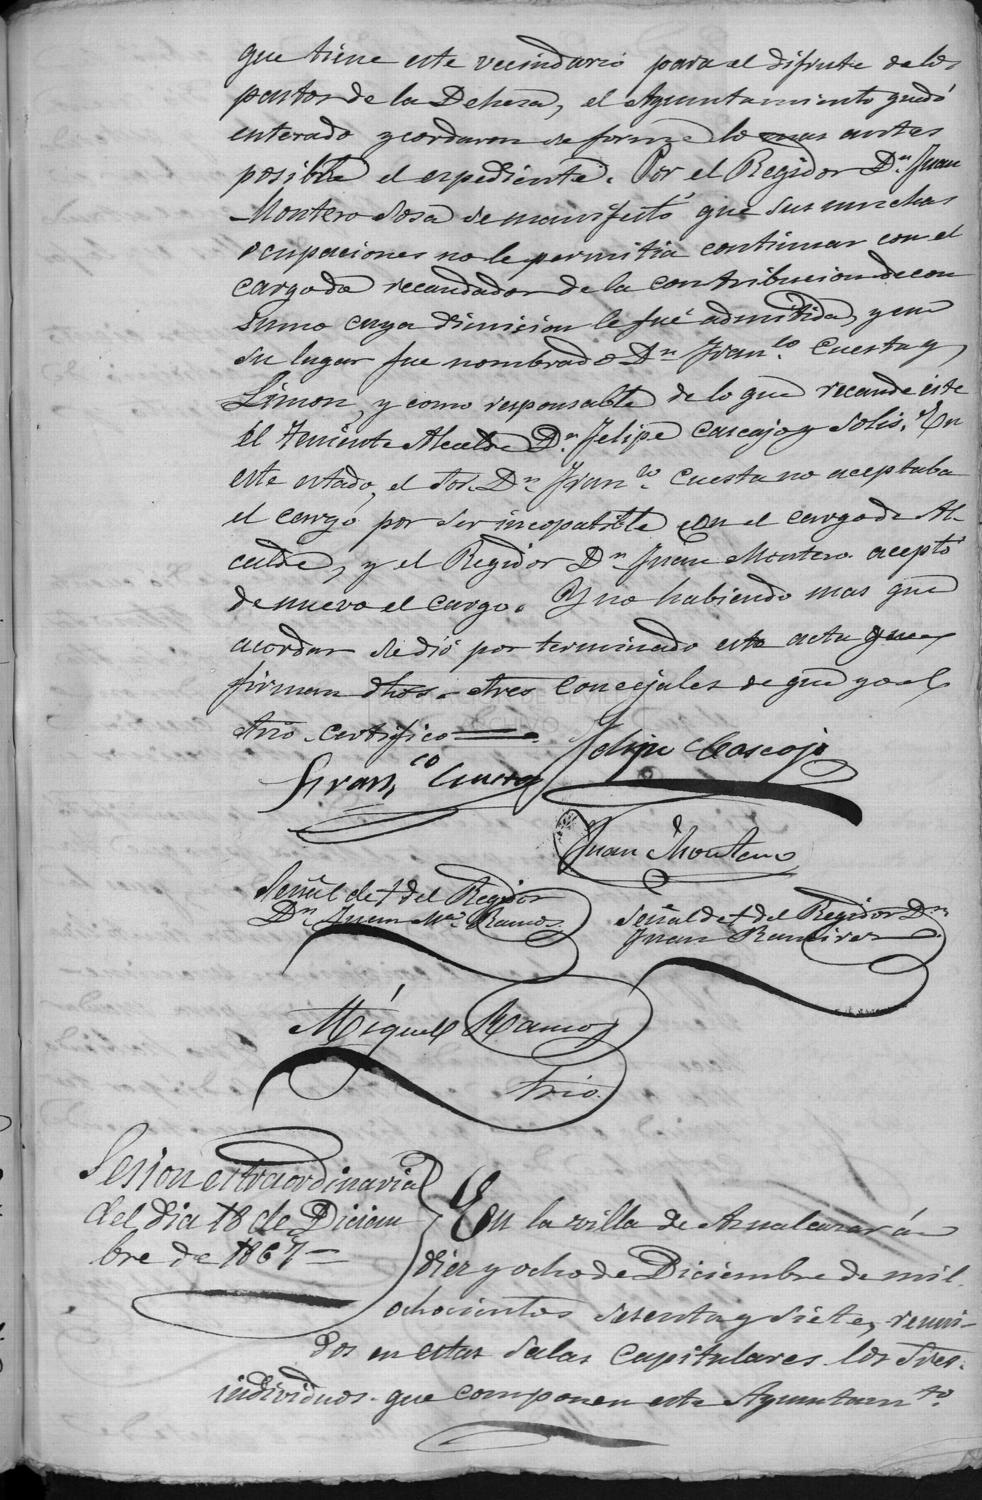 que tiene este vecindario para el difrute de los
pastos de la Dehesa, el Ayuntamiento quedó
enterado y cordaron se forme lo mas antes
posible el espediente. Por el Regidor Dn. Juan
Montero Sosa se manifestó que sus muchas
ocupaciones no le permitia continuar con el
cargo de recaudador de la contribucion de con
sumo cuya dimicion le fué admitida, y en
su lugar fue nombrado Dn Franco. Cuesta y
Limon, y como responsable de lo que recaude este
él Teniente Alcalde Dn. Felipe Cascajo y Solis. En
este estado, el Sor. Dn. Franco. Cuesta no aceptaba
el cargo por ser incopatible con el cargo de Al-
calde, y el Regidor Dn Juan Montero aceptó
de nuevo el cargo. Y no habiendo mas que
acordar se dió por terminado este acta que
firman dhos. Sres Concejales de que yo el
Srio certifico
Felipe Cascajo
Franco. Cuesta
Juan Montero
Señal de + del Regidor
Dn. Juan Ma. Ramos
Señal de + del Regidor Dn.
Juan Ramirez
Miguel Ramos
Srio.
Sesion estraordinaria
del dia 18 de Diciem
bre de 1867
En la villa de Aznalcazar á
diez y ocho de Diciembre de mil
ochocientos sesenta y siete, reuni-
dos en estas Salas Capitulares los Sres.
individuos que componen este Ayuntamto.
DIPUTACIÓN DE SEVILLA
ARCHIVO